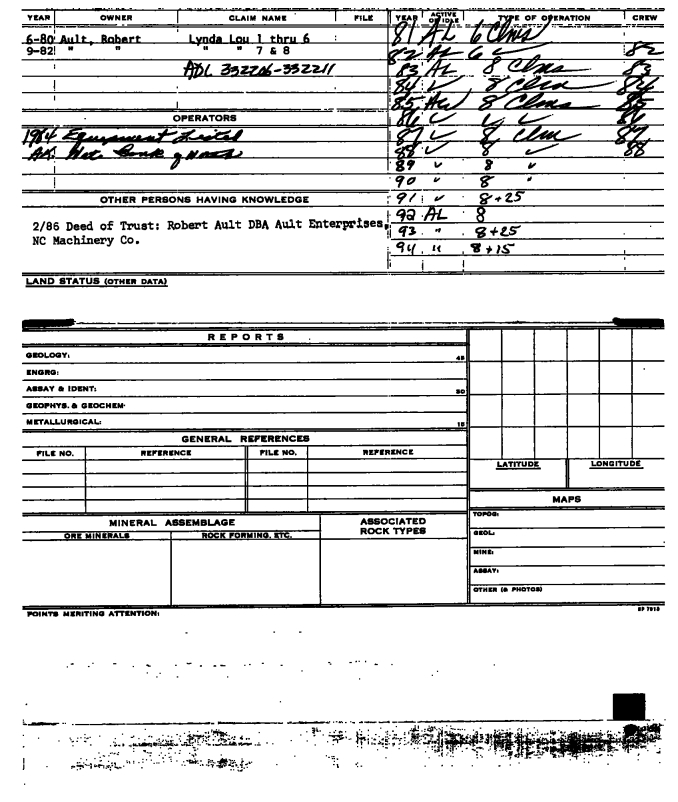 YEAR OWNER CLAIM NAME FILE
6-80 Ault, Robert Lynda Lou 1 thru 6
9-82 " " " " 7 & 8
ADL 332206-332211
OPERATORS
1984 Equipment
AK Nat. Bank of North
OTHER PERSONS HAVING KNOWLEDGE
2/86 Deed of Trust: Robert Ault DBA Ault Enterprises,
NC Machinery Co.
YEAR ACTIVE OR IDLE TYPE OF OPERATION CREW
81 AL 6 Clms
82 AL 6 ✓ 82
83 AL 8 Clms 83
84 ✓ 8 Clm 84
85 AW 8 Clms 85
86 ✓ ✓ ✓ 86
87 ✓ 8 Clm 87
88 ✓ 8 ✓ 88
89 ✓ 8 "
90 ✓ 8 "
91 ✓ 8+25
92 AL 8
93 " 8+25
94 " 8+15
LAND STATUS (OTHER DATA)
REPORTS
GEOLOGY: 45
ENGRG:
ASSAY & IDENT: 30
GEOPHYS. & GEOCHEM.
METALLURGICAL: 15
GENERAL REFERENCES
FILE NO. REFERENCE FILE NO. REFERENCE
LATITUDE LONGITUDE
MAPS
TOPOG:
GEOL:
MINE:
ASSAY:
OTHER (& PHOTOS)
MINERAL ASSEMBLAGE
ORE MINERALS ROCK FORMING, ETC.
ASSOCIATED
ROCK TYPES
POINTS MERITING ATTENTION: